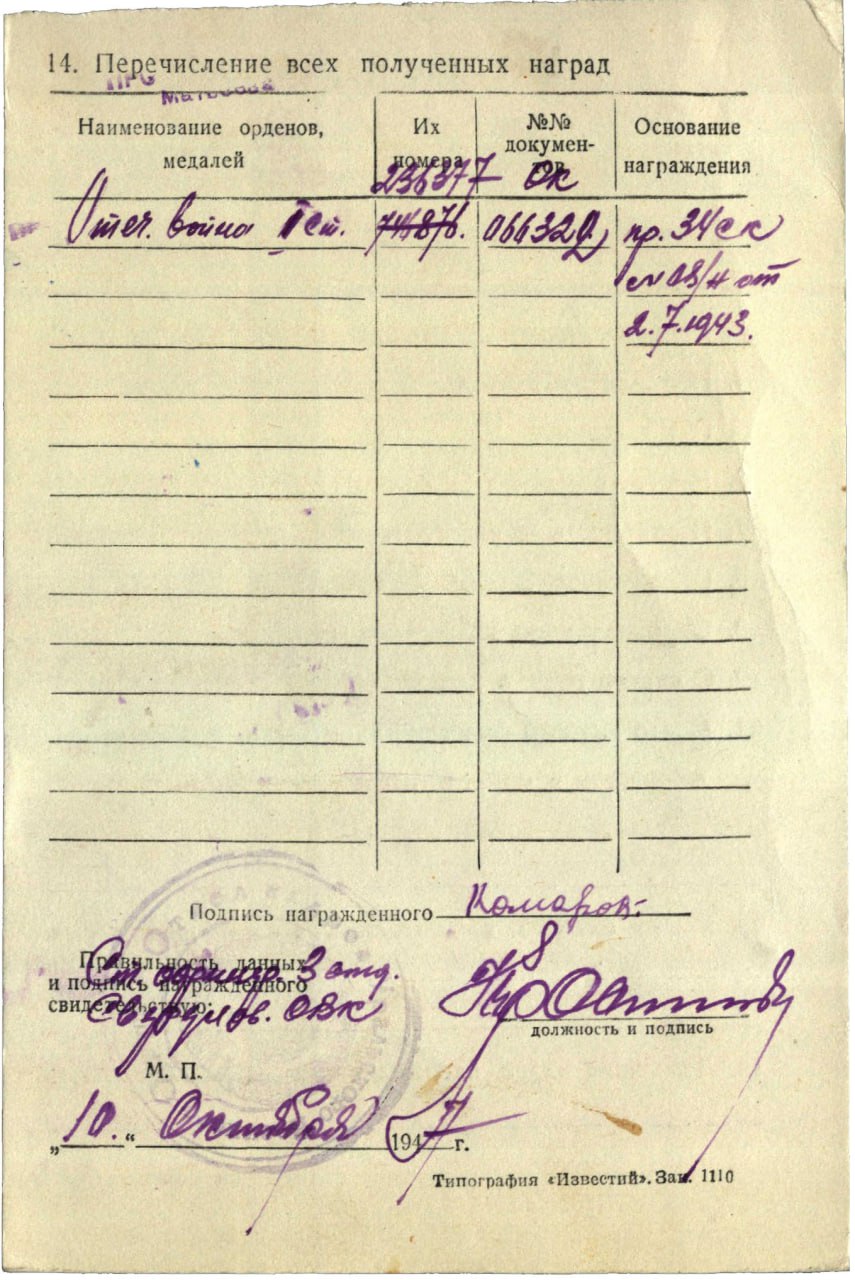 14. Перечисление всех полученных наград
Наименование орденов, медалей
Их номера
№№ документов
Основание награждения
236377 ОК
Отеч. война I ст. 066329 пр. 34 ск
№ 08/н от
2.7.1943.
Подпись награжденного Комаров.
Правильность данных
и подпись награжденного
свидетельствую:
Ст. офицер. 3 отд.
Свердлов. ОВК
должность и подпись
М. П.
„10.“ Октября 1947 г.
Типография «Известий». Зак. 1110